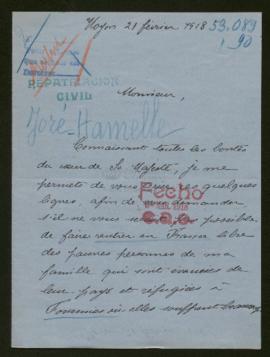 Noyon 21 février 1918
53.083
90
REPATRIACION
CIVIL
Monsieur,
Jore-Hamelle
Connaissant toutes les bontés
du cœur de Sa Majesté, je me
permets de vous ces quelques
lignes, afin de vous demander
s'il ne vous possible
Fecho
de faire rentrer en France libre
c.a.o.
des pauvres personnes de ma
famille qui sont évacuées de
leur pays et réfugiées à
où elles souffrent